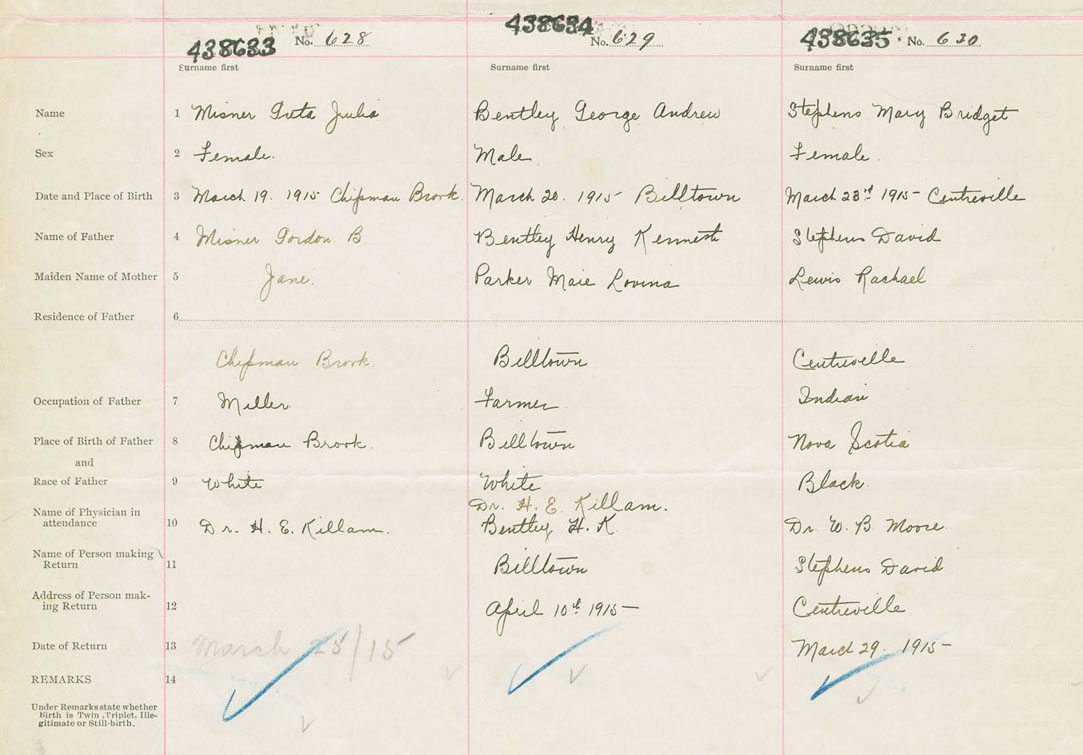 438633 No. 628 438634 No. 629 438635 No. 630
Surname first Surname first Surname first
Name 1 Misner Greta Julia Bentley George Andrew Stephens Mary Bridget
Sex 2 Female. Male. Female.
Date and Place of Birth 3 March 19. 1915 Chipman Brook. March 20. 1915 - Billtown March 23rd 1915 - Centreville
Name of Father 4 Misner Gordon. B. Bentley Henry Kenneth Stephens David
Maiden Name of Mother 5 Jane. Parker Lovina Lewis Rachael
Residence of Father 6
Chipman Brook Billtown Centreville
Occupation of Father 7 Miller. Farmer. Indian
Place of Birth of Father 8 Chipman Brook. Billtown Nova Scotia
and
Race of Father 9 White White Black.
Dr. H. E. Killam.
Name of Physician in
attendance 10 Dr. H. E. Killam. Bentley H. K. Dr W. B Moore
Name of Person making
Return 11 Billtown Stephens David
Address of Person mak-
ing Return 12 April 10th 1915 - Centreville
Date of Return 13 March 25/15 March 29. 1915 -
REMARKS 14
Under Remarks state whether
Birth is Twin, Triplet, Ille-
gitimate or Still-birth.